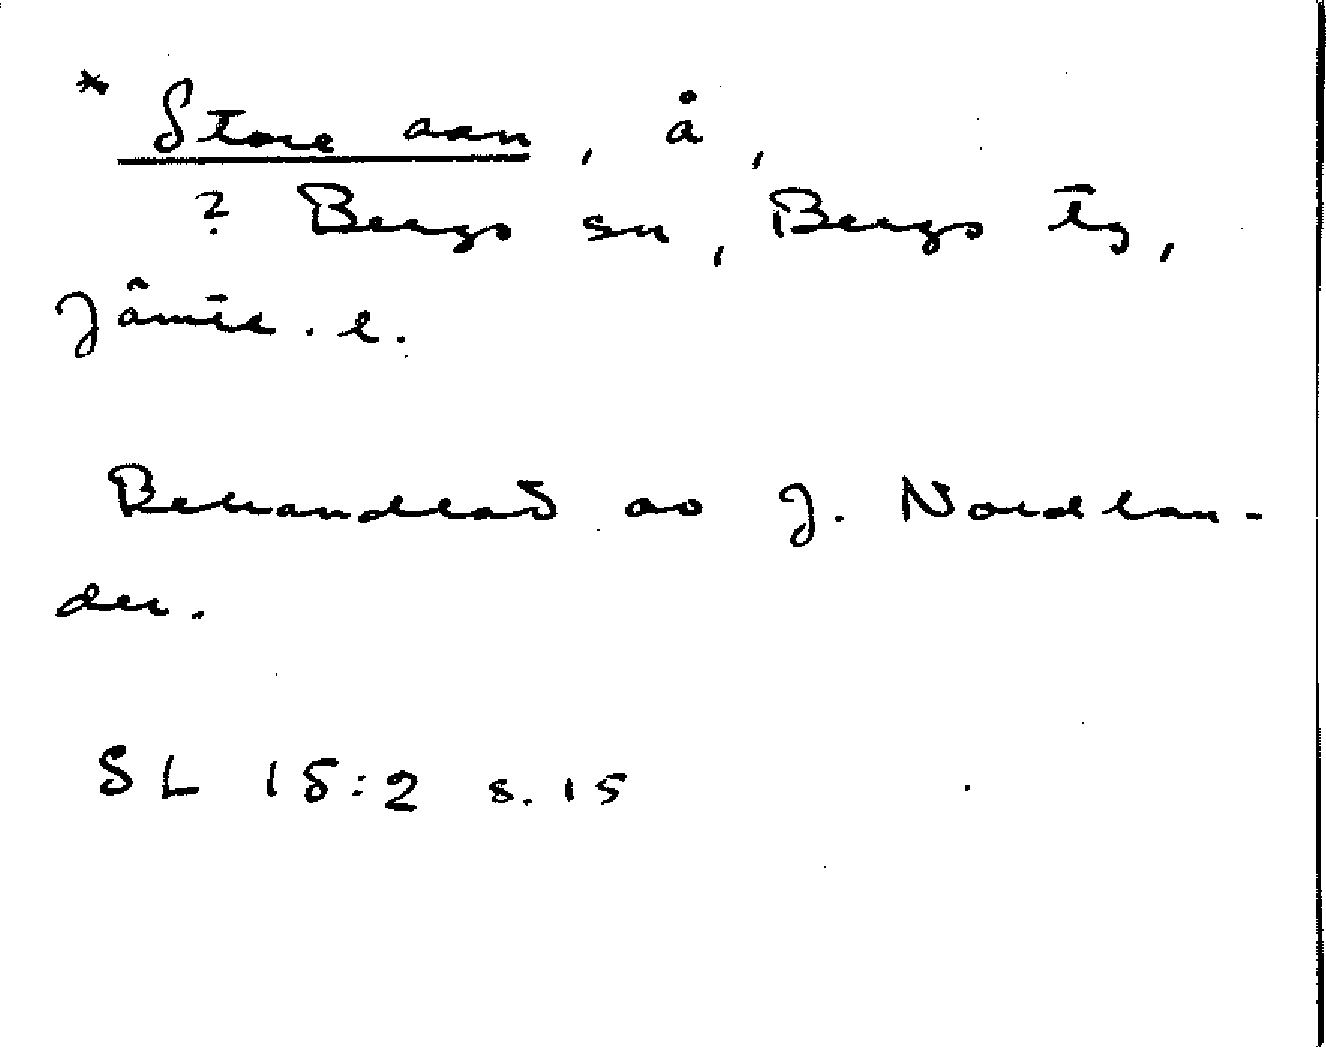 * Store aan, å,
? Bergs sn, Bergs tg,
Jämtl. l.
Behandlat av J. Nordlan-
der.
SL 15:2 s. 15